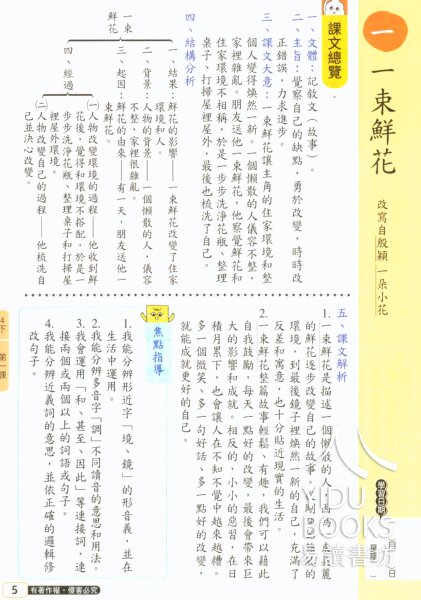 一
一束鮮花
改寫自殷穎 一朵小花
學習日期
月
日
課文總覽
一、文體：記敘文（故事）。
二、主旨：覺察自己的缺點，勇於改變，時時改
正錯誤，力求進步。
三、課文大意：一束鮮花讓主角的住家環境和整
個人變得煥然一新。一個懶散的人儀容不整，
家裡雜亂。朋友送他一束鮮花，他察覺鮮花和
住家環境不相稱，於是一步步洗淨花瓶、整理
桌子、打掃屋裡屋外，最後也梳洗了自己。
四、結構分析
一束
鮮花
一、結果：鮮花的影響──一束鮮花改變了住家
環境和人。
二、背景：人物的背景──一個懶散的人，儀容
不整，家裡很雜亂。
三、起因：鮮花的由來──有一天，朋友送他一
束鮮花。
四、經過
(一)人物改變環境的過程──他收到鮮
花後，覺得和環境不搭配，於是一
步步洗淨花瓶、整理桌子和打掃屋
裡屋外環境。
(二)人物改變自己的過程──他梳洗自
己並決心改變。
五、課文解析
1.一束鮮花是描述一個懶散的人，因為一束美麗
的鮮花逐步改變自己的故事。從剛開始雜亂的
環境，到最後鏡子裡煥然一新的自己，充滿了
反差和寓意，也十分貼近現實的生活。
2.一束鮮花整篇故事輕鬆、有趣，我們可以藉此
自我鼓勵，每天一點好的改變，最後會帶來巨
大的影響和成就。相反的，小小的惡習，在日
積月累下，也會讓人在不知不覺中越來越糟。
多一個微笑、多一句好話、多一點好的改變，
就能成就更好的自己。
焦點指導
1.我能分辨形近字「境、鏡」的形音義，並在
生活中運用。
2.我能分辨多音字「調」不同讀音的意思和用法。
3.我會運用「和、甚至、因此」等連接詞，連
接兩個或兩個以上的詞語或句子。
4.我能分辨近義詞的意思，並依正確的邏輯修
改句子。
4下
第一課
5
有著作權・侵害必究
YIDU
BOOKS
易讀書坊